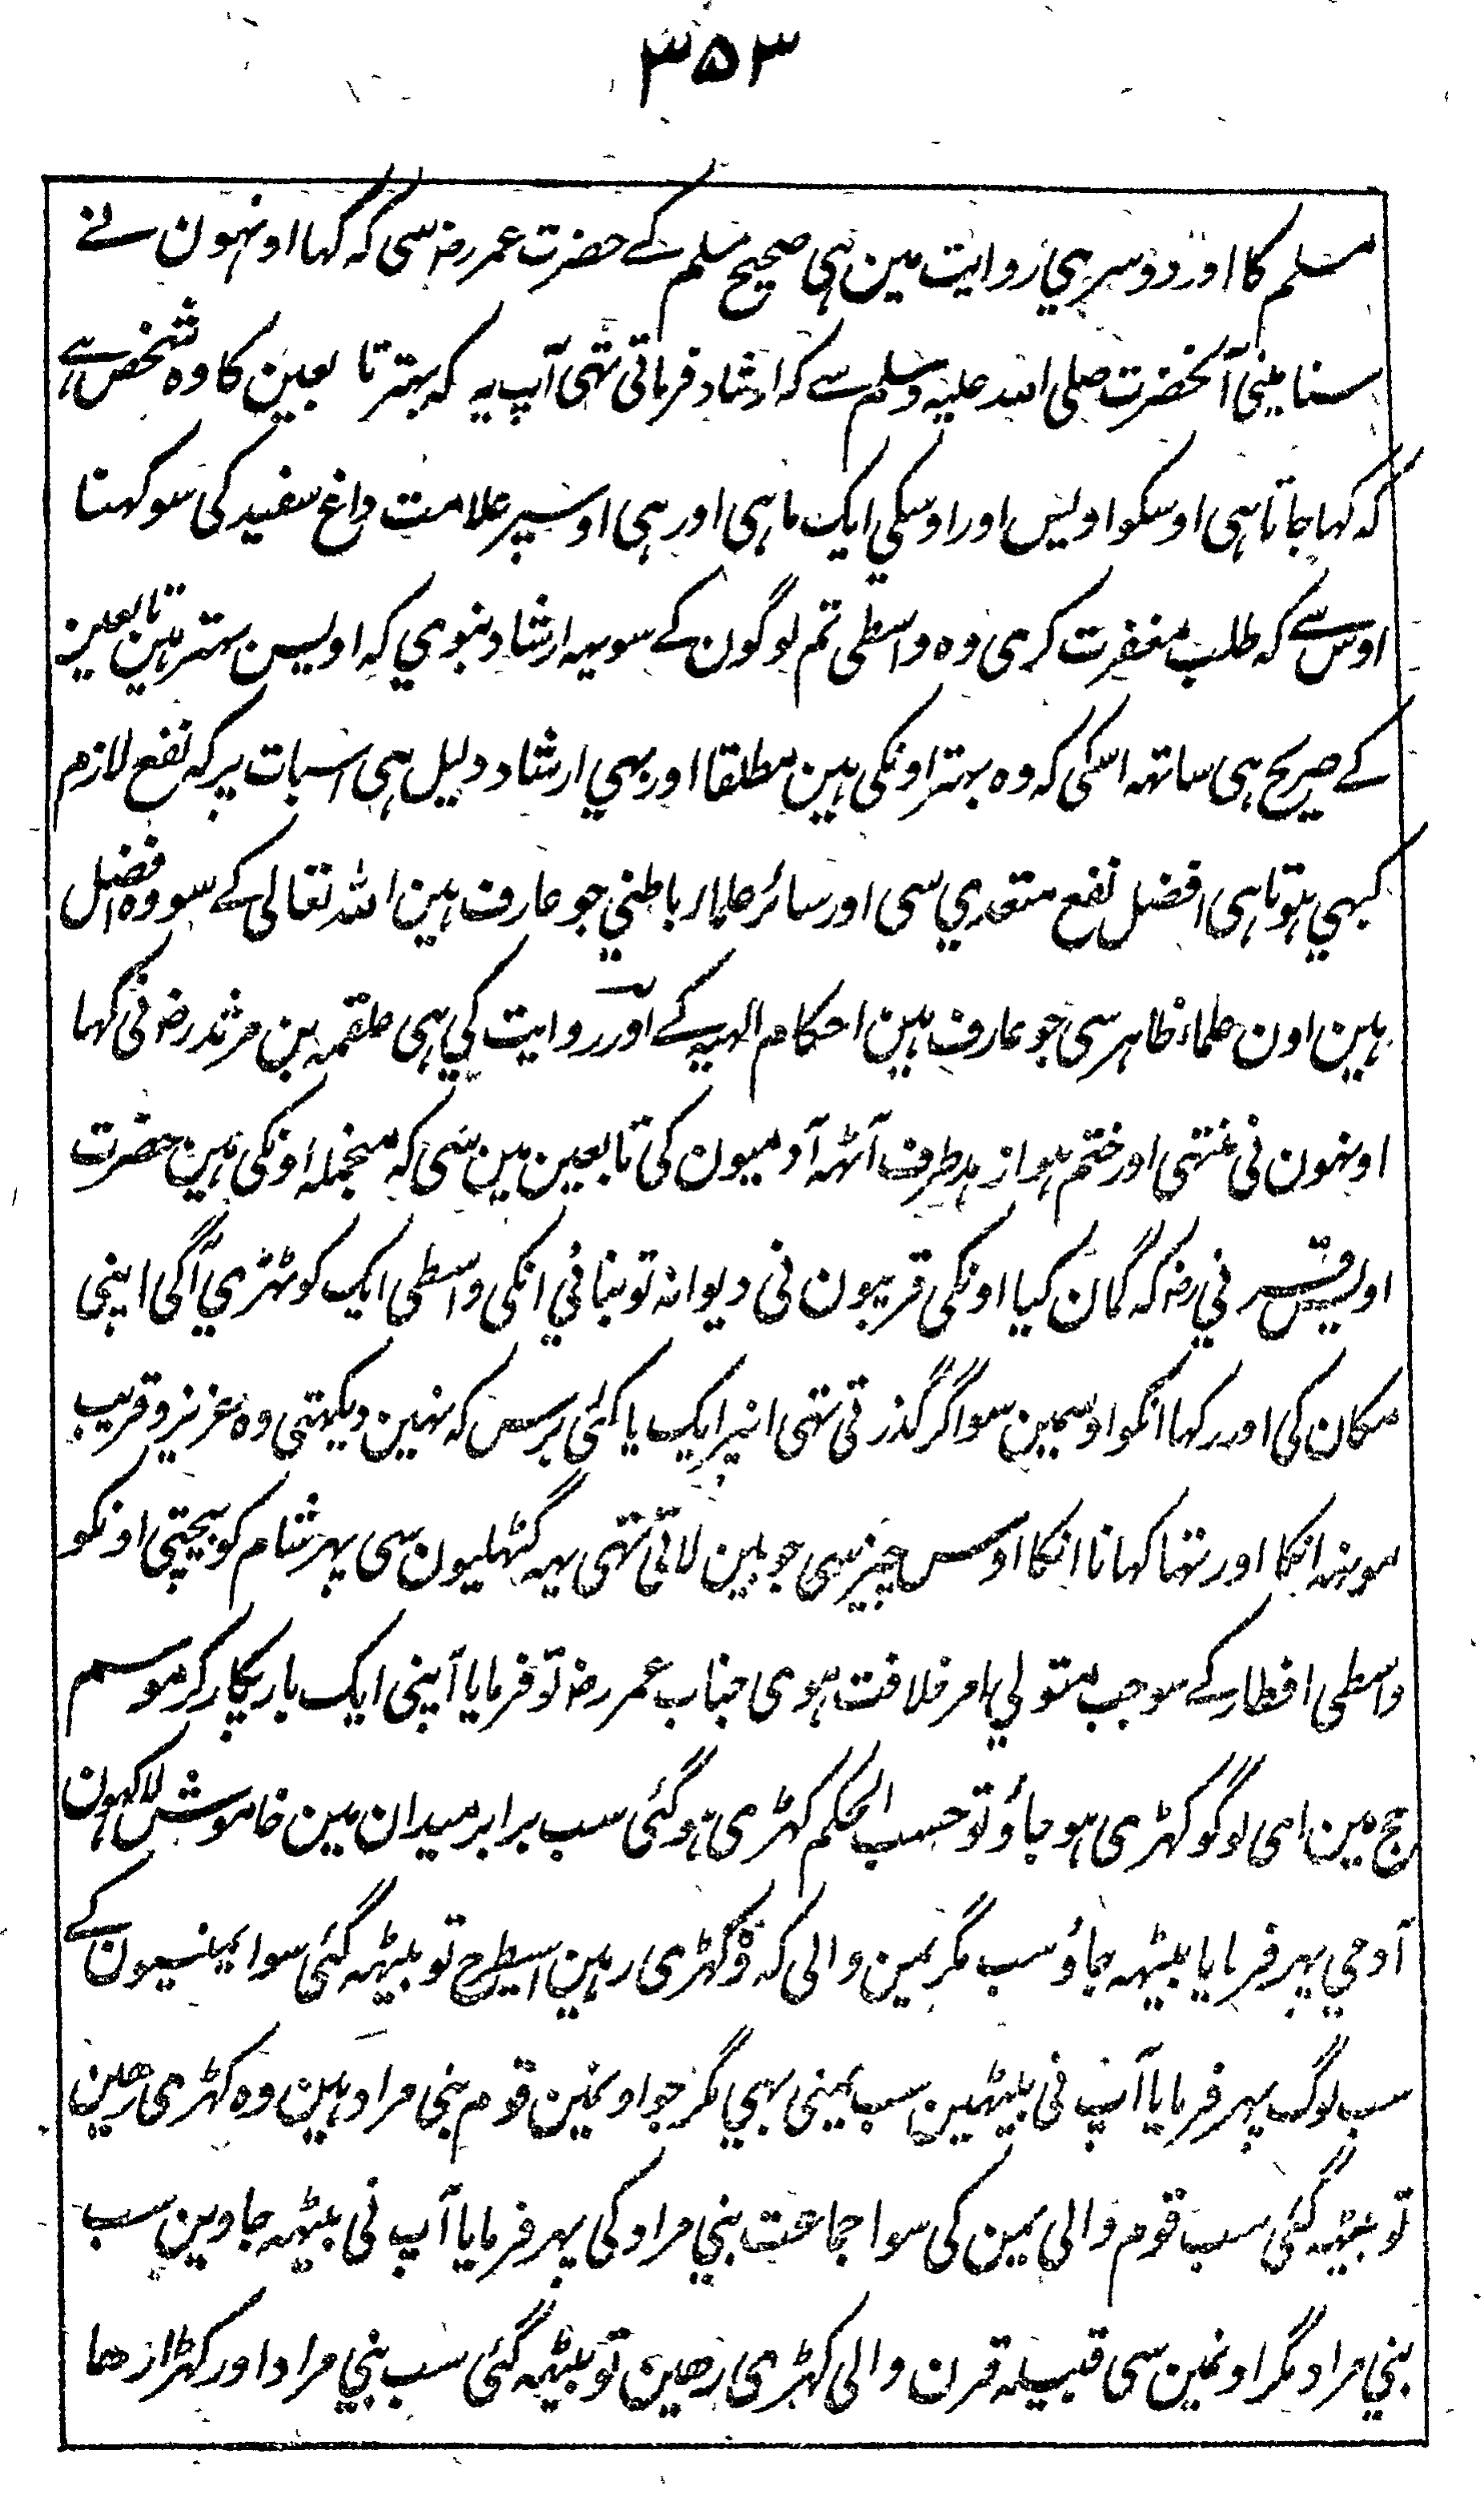 ۳۵۳
مسلم کا اور دوسری روایت مین ہی صحیح مسلم کے حضرت عمر رضہ سی کہ کہا اونہون نے
سنا مینی آنحضرت صلی اللہ علیہ وسلم سے کہ ارشاد فرماتی تہی آپ یہ کہ بہتر تابعین کا وہ شخص ہے
کہ کہا جاتا ہی اوسکو اویس اور اوسکی ایک ما ہی اور ہی اوسپر علامت داغ سفید کی سو کہنا
اوس سے کہ طلب مغفرت کری وہ واسطی تم لوگون کے سو یہہ ارشاد نبوی کہ اویس بہتر ہین تابعین
کے صریح ہی ساتہہ اسکی کہ وہ بہتر اونکی ہین مطلقا اور بہی ارشاد دلیل ہی اسبات پر کہ نفع لازم
کبہی ہوتا ہی افضل نفع متعدی سی اور سائر علماء باطنی جو عارف ہین اللہ تعالی کے سو وہ افضل
ہین اون علماء ظاہر سی جو عارف ہین احکام الہیہ کے اور روایت کی ہی علقمہ بن مرثد رضہ نی کہا
اونہون نی منتہی اور ختم ہوا زہد طرف آٹہہ آدمیون کی تابعین مین سی کہ منجملہ اونکی ہین حضرت
اویس قرنی رضہ کہ گمان کیا اونکی قریبون نی دیوانہ تو بنائی انکی واسطی ایک کوٹہڑی آگی اپنی
مکان کی اور رکہا انکو اوسمین سو اگر گذرتی تہی انپر ایک یا کئی برس کہ نہین دیکہتی وہ عزیز و قریب
مونہہ انکا اور تہا کہانا انکا اوس چیز سی جو بین لاتی تہی یہہ گٹہلیون سی پہر شام کو بیچتی اونکو
واسطی افطار کے سو جب متولی امر خلافت ہوی جناب عمر رضہ تو فرمایا آپنی ایک بار پکار کر موسم
حج مین ای لوگو کہڑی ہو جاؤ تو حسب الحکم کہڑی ہو گئی سب برابر میدان مین خاموش لاکہون
آدمی پہر فرمایا بیٹہہ جاؤ سب مگر یمن والی کہ وہ کہڑی رہین اسیطرح تو بیٹہہ گئی سوا یمنیون کے
سب لوگ پہر فرمایا آپ نی بیٹہین سب یمنی بہی مگر جو اونمین قوم بنی مراد ہین وہ کہڑی رہین
تو بیٹہہ گئی سب قوم والی یمن کی سوا جماعت بنی مراد کی پہر فرمایا آپ نی بیٹہہ جاوین سب
بنی مراد مگر اونمین سی قبیلہ قرن والی کہڑی رہین تو بیٹہہ گئی سب بنی مراد اور کہڑا رہا